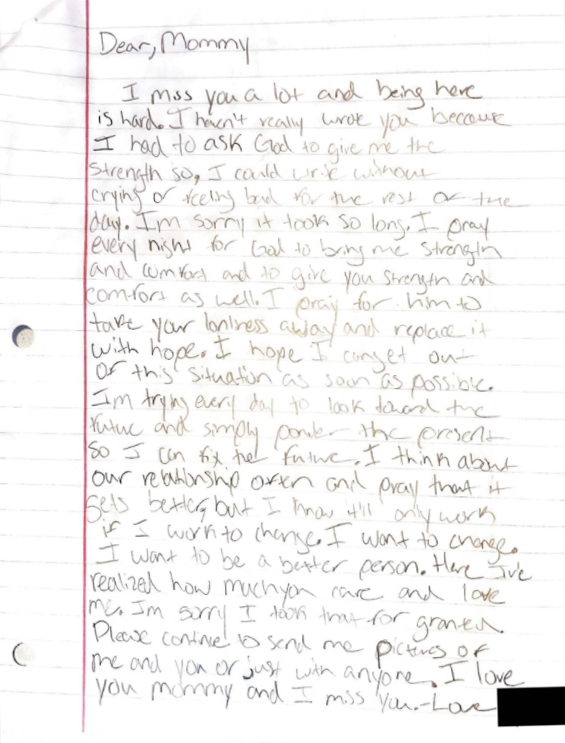 Dear, Mommy
I miss you a lot and being here
is hard. I haven't really wrote you because
I had to ask God to give me the
strength so, I could write without
crying or feeling bad for the rest of the
day. I'm sorry it took so long. I pray
every night for God to bring me strength
and comfort and to give you strength and
comfort as well. I pray for him to
take your lonliness away and replace it
with hope. I hope I can get out
of this situation as soon as possible.
Im trying every day to look toward the
future and simply ponder the present
so I can fix the future. I think about
our relationship often and pray that it
gets better, but I know it'll only work
if I work to change. I want to change.
I want to be a better person. Here I've
realized how much you care and love
me. Im sorry I took that for granted.
Please continue to send me pictures of
me and you or just with anyone. I love
you mommy and I miss you.-Love